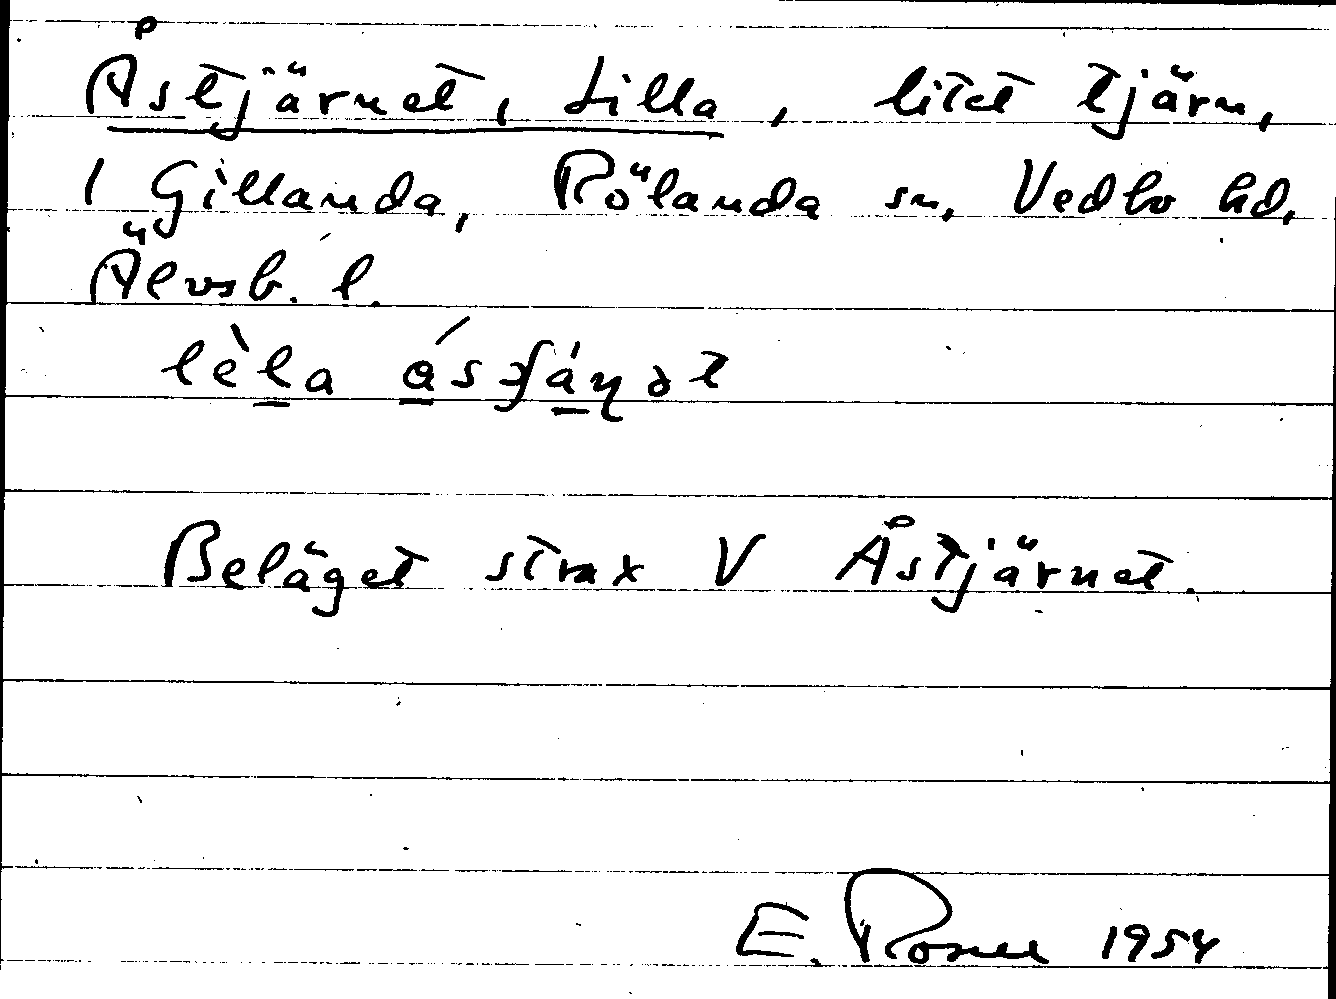 Åstjärnet, Lilla, litet tjärn,
1 Gillanda, Rölanda sn, Vedbo hd,
Älvsb. l.
lèla
Beläget strax V Åstjärnet.
E. Rosell 1954